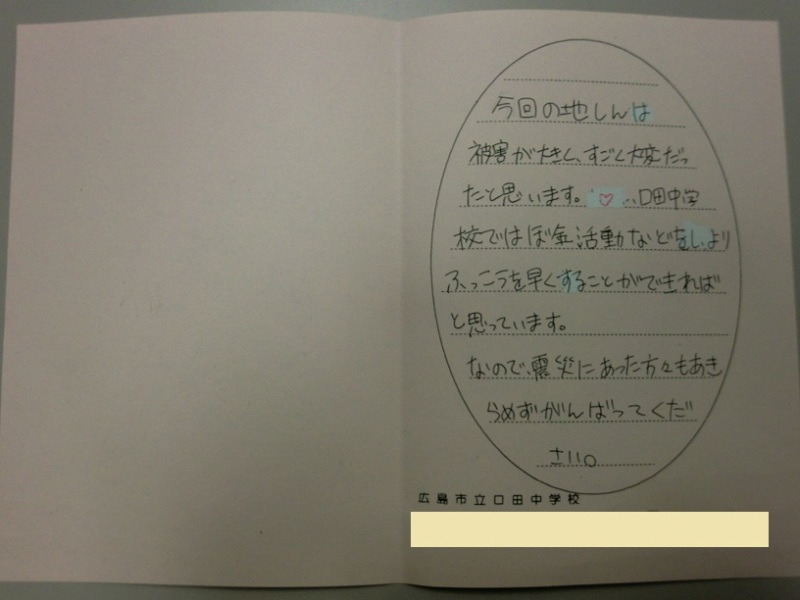 今回の地しんは
被害が大きく、すごく大変だっ
たと思います。♡...口田中学
校ではぼ金活動などをし、より
ふっこうを早くすることができれば
と思っています。
なので、震災にあった方々もあき
らめずがんばってくだ
さい。
広島市立口田中学校